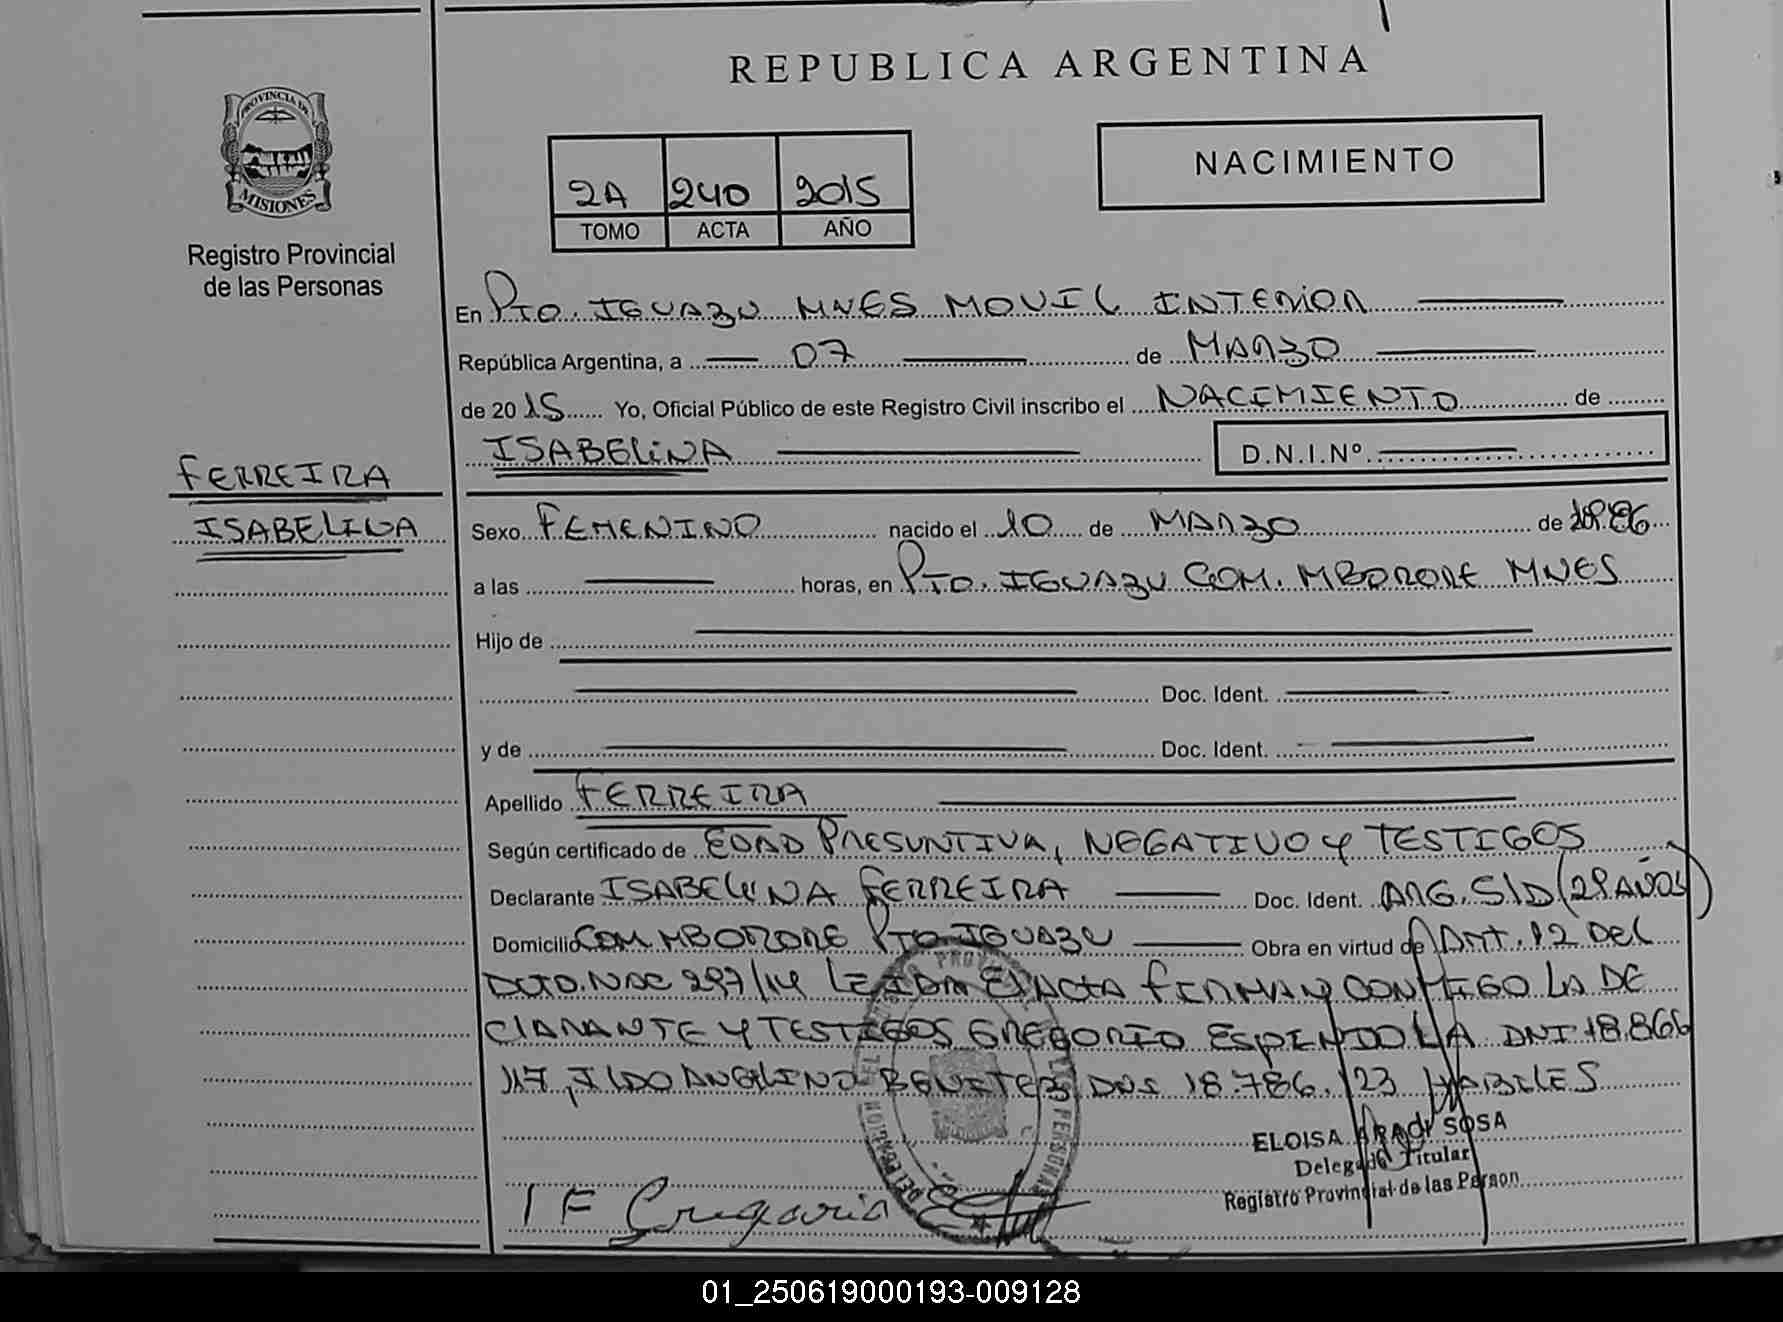 REPUBLICA ARGENTINA
PROVINCIA DE
MISIONES
Registro Provincial
de las Personas
2A 240 2015
TOMO ACTA AÑO
NACIMIENTO
En PTO. IGUAZU MNES MOVIL INTERIOR
República Argentina, a 07 de MARZO
de 2015 Yo, Oficial Público de este Registro Civil inscribo el NACIMIENTO de
ISABELINA D.N.I.Nº
FERREIRA
ISABELINA
Sexo FEMENINO nacido el 10 de MARZO de 1986
a las horas, en PTO. IGUAZU COM. MBORORE MNES
Hijo de
Doc. Ident.
y de Doc. Ident.
Apellido FERREIRA
Según certificado de EDAD PRESUNTIVA, NEGATIVO Y TESTIGOS
Declarante ISABELINA FERREIRA Doc. Ident. ARG. S/D (28 AÑOS)
Domicilio COM MBORORE PTO IGUAZU Obra en virtud de ART. 12 DEL
DCTO. NAC 297/14 LEIDA EL ACTA FIRMAN CONMIGO LA DE
CLARANTE Y TESTIGOS GREGORIO ESPINDOLA DNI 18.866
117, ILDO ANGELINO BENITEZ DNI 18.786.123 HABILES
ELOISA SOSA
Delegado Titular
Registro Provincial de las Person
I F Gregorio
01_250619000193-009128